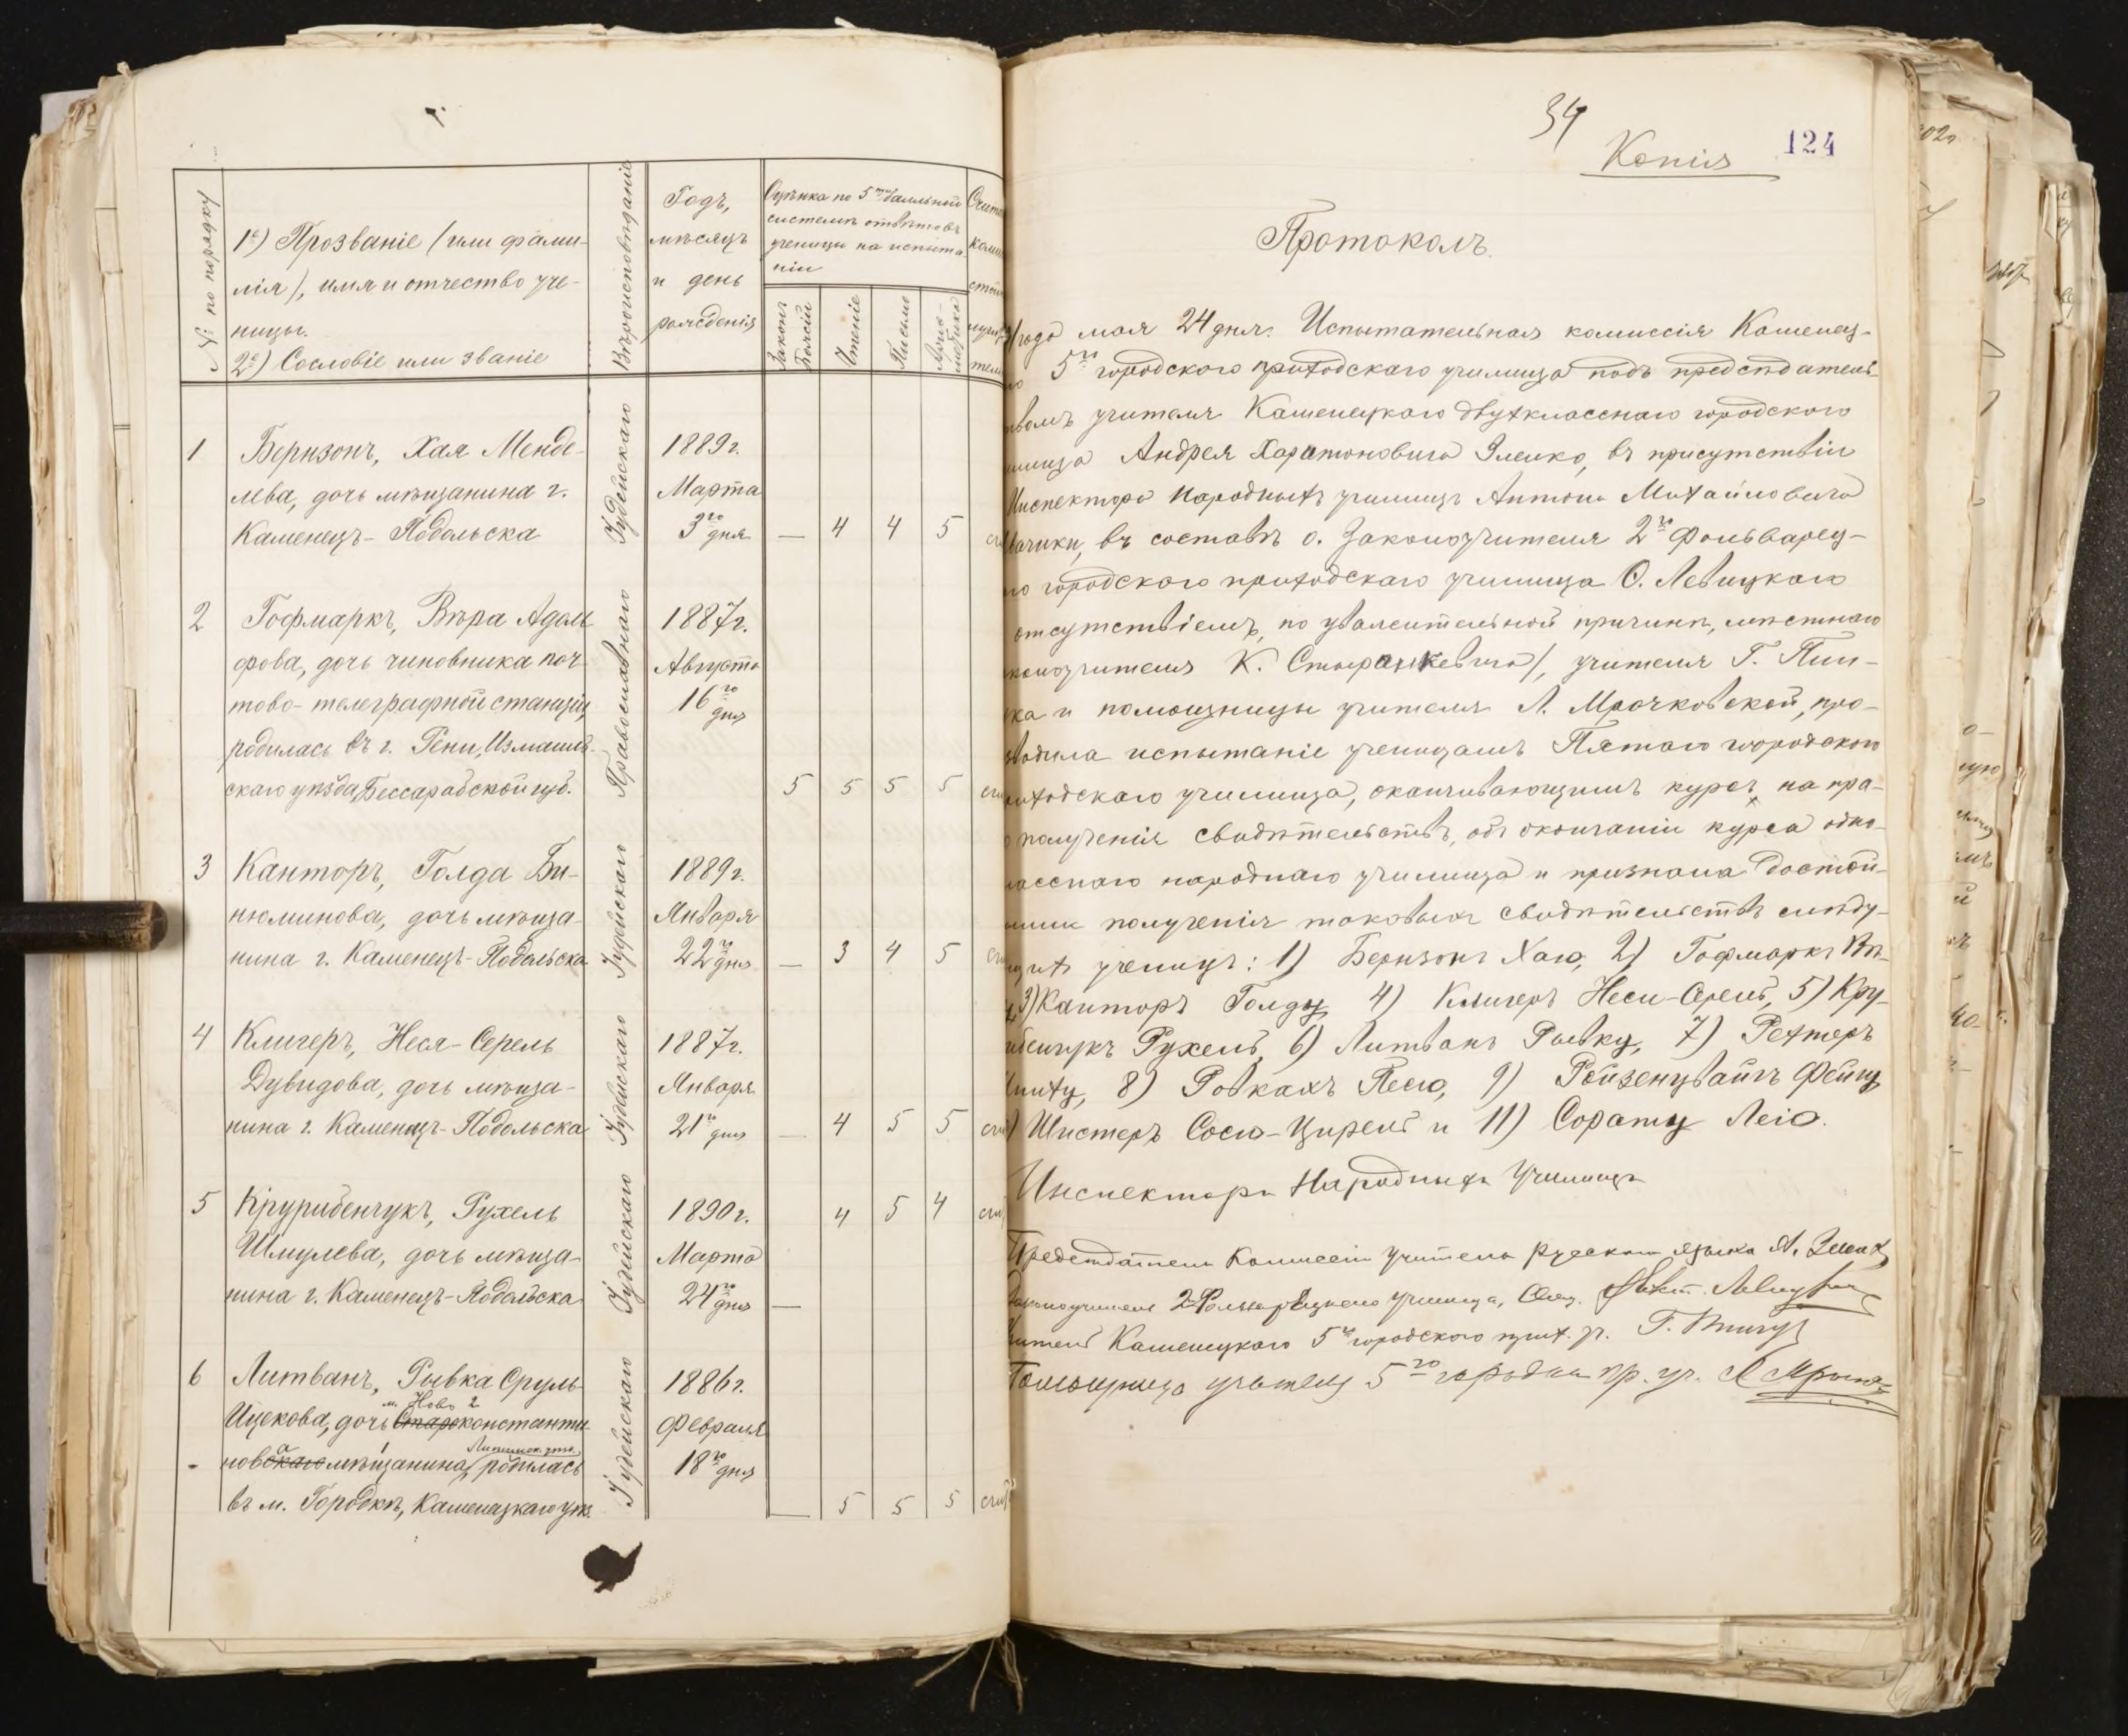 № по порядку
1е) Прозваніе (или фами-
лія), имя и отчество уче-
ницы.
2е) Сословіе или званіе
Вѣроисповѣданіе
Годъ,
мѣсяцъ
и день
рожденія
Оцѣнка по 5ти бальной
системѣ отвѣтовъ
ученицы на испыта-
ніи
Законъ
Божій
Чтеніе
Письмо
1
Бернзонъ, Хая Менде-
лева, дочь мѣщанина г.
Каменецъ-Подольска
Іудейскаго
1889г.
Марта
3го дня
— 4 4 5
2
Гофмаркъ, Вѣра Адоль
фова, дочь чиновника поч-
тово-телеграфной станціи,
родилась въ г. Рени, Измаиль-
скаго уѣзда Бессарабской губ.
Православнаго
1887г.
Августа
16го
дня
5 5 5 5
3
Канторъ, Голда Би-
нюминова, дочь мѣща-
нина г. Каменецъ-Подольска
Іудейскаго
1889г.
Января
22го дня
— 3 4 5
4
Клигеръ, Неся-Серель
Дувидова, дочь мѣща-
нина г. Каменецъ-Подольска
Іудейскаго
1887г.
Января
21го дня
— 4 5 5
5
Крурибенчукъ, Рухель
Шмулева, дочь мѣща-
нина г. Каменецъ-Подольска
Іудейскаго
1890г.
Марта
24го дня
— 4 5 4
6
Литванъ, Рывка Сруль-
м. Ново 2
Ицекова, дочь Староконстанти-
новскаго мѣщанина, родилась
въ м. Городкѣ, Каменецкаго уѣз.
Іудейскаго
1886г.
Февраля
18го дня
— 5 5 5
34
Копія
124
Протоколъ.
года мая 24 дня. Испытательная комиссія Каменец-
5го городского приходскаго училища подъ предсѣдатель-
учителя Каменецкаго двухкласснаго городского
Андрея Харитоновича Зленко, въ присутствіи
Инспектора народныхъ училищъ Антона Михайловича
въ составѣ о. Законоучителя 2го Фольварец-
городского приходскаго училища О. Левицкаго
отсутствіемъ, по уважительной причинѣ, мѣстнаго
К. Стыранкевича), учителя Г.
и помощницы учителя Л. Мрочковской, про-
испытаніе ученицамъ Пятаго городского
училища, оканчивающимъ курсъ, на пра-
полученія свидѣтельствъ, объ окончаніи курса одно-
народнаго училища и признала достой-
полученія таковыхъ свидѣтельствъ слѣду-
ученицъ: 1) Бернзонъ Хаю, 2) Гофмаркъ Вѣ-
3) Канторъ Голду, 4) Клигеръ Несю-Серель, 5) Кру-
Рухель, 6) Литванъ Рывку, 7) Рехтеръ
8) Ровкахъ Песю, 9) Ройзенцвайгъ Фейгу
Шистеръ Сосю-Цирель и 11) Сорату Лею.
Инспекторъ Народныхъ Училищъ
Предсѣдатель Комиссіи учитель русскаго языка А. Зленко
Законоучитель 2 Фольварецкаго училища, Свящ. Левицкій
Каменецкаго 5го городского прих. уч. Г.
Помощница учителя 5го город. пр. уч. Л